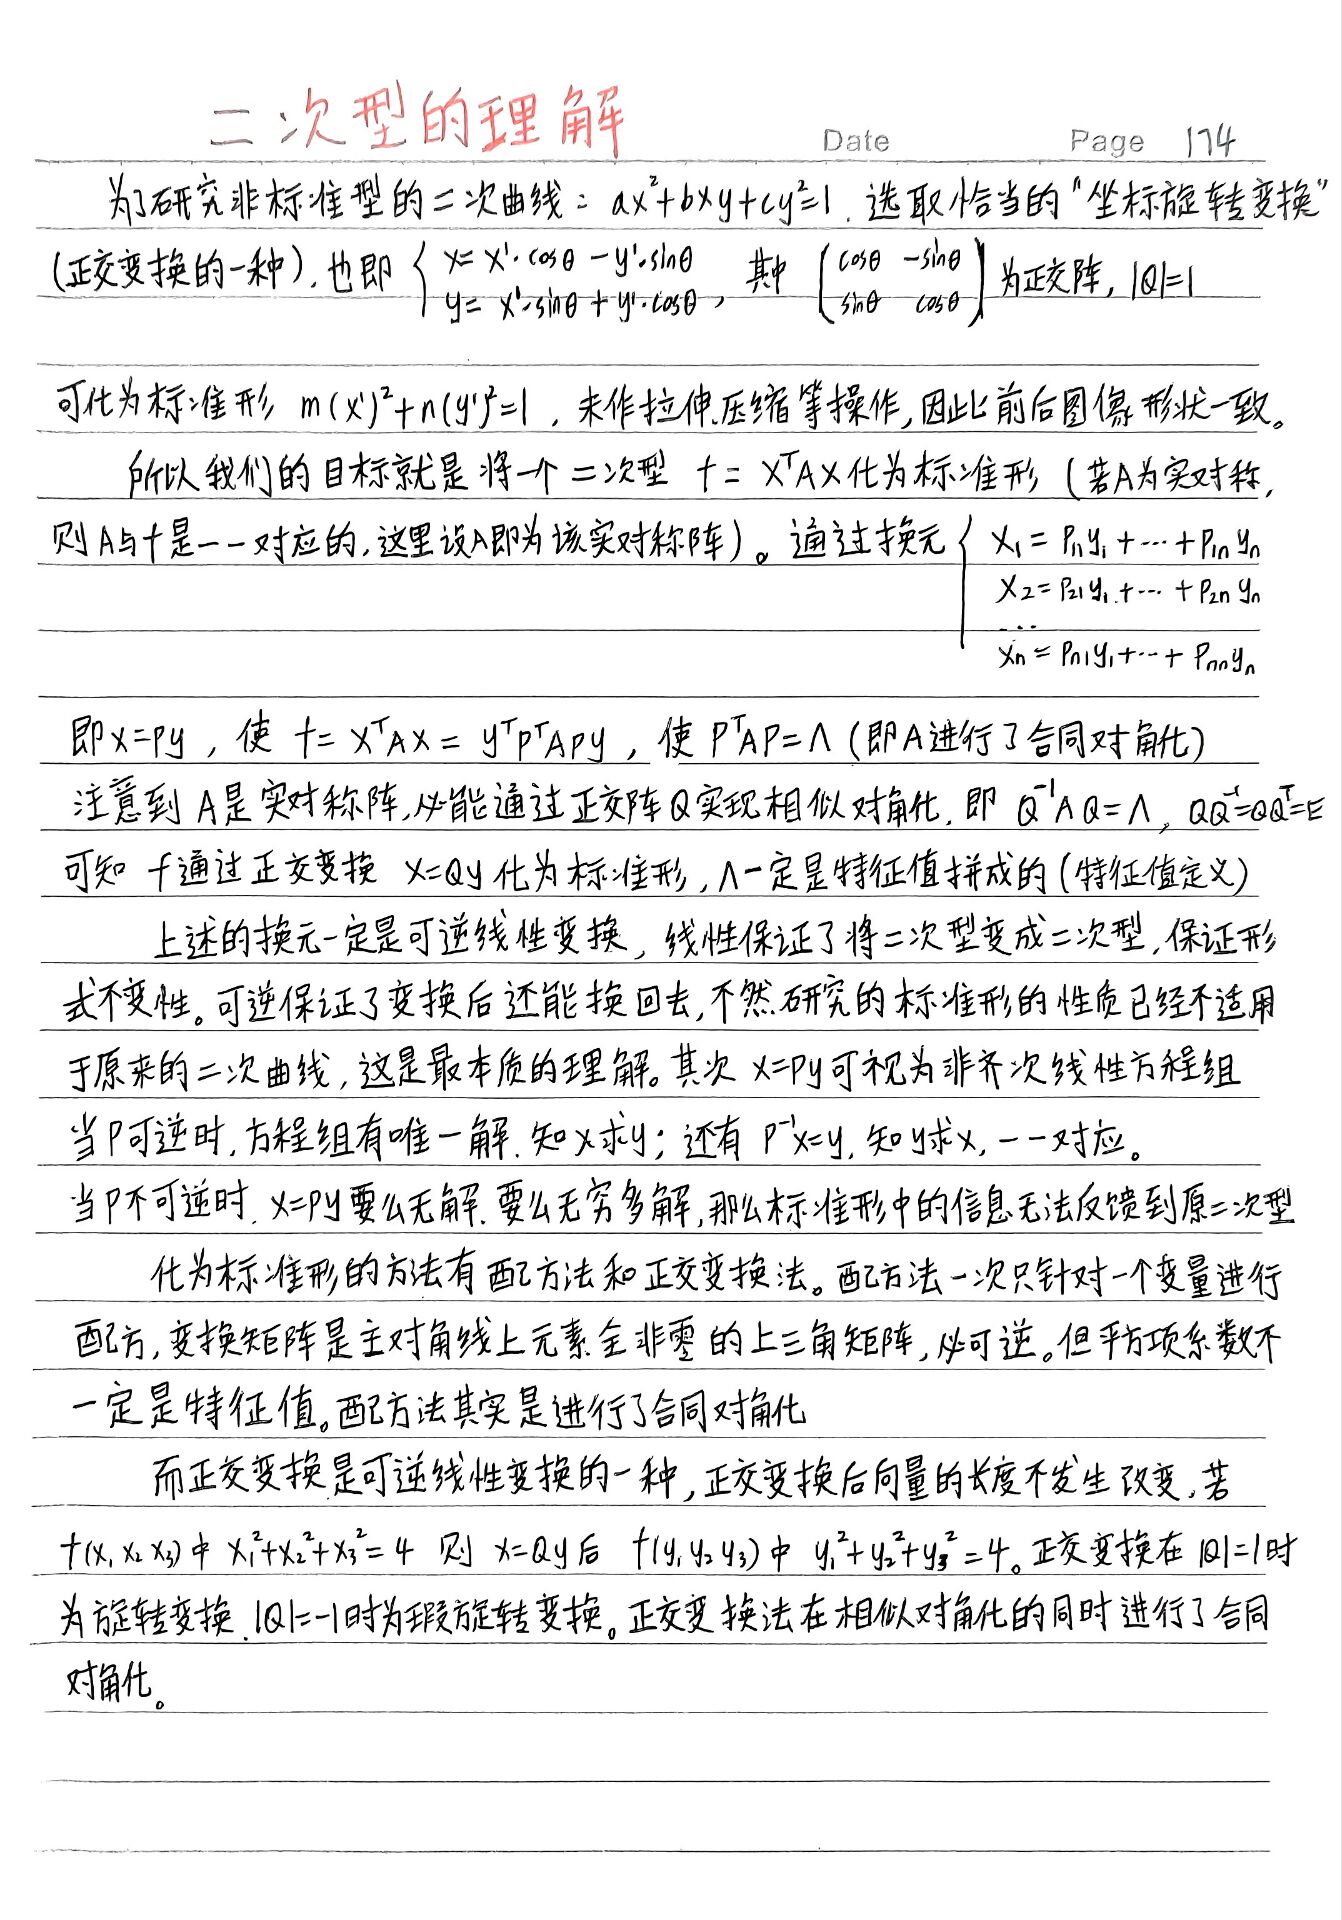 二次型的理解
Date Page 174
为了研究非标准型的二次曲线：ax²+bxy+cy²=1，选取恰当的“坐标旋转变换”
(正交变换的一种)，也即 { x=x'·cosθ-y'·sinθ
y=x'·sinθ+y'·cosθ， 其中 (cosθ -sinθ
sinθ cosθ) 为正交阵，|Q|=1
可化为标准形 m(x')²+n(y')²=1，未作拉伸、压缩等操作，因此前后图像形状一致。
所以我们的目标就是将一个二次型 f=XᵀAX化为标准形（若A为实对称，
则A与f是一一对应的，这里设A即为该实对称阵）。通过换元 { x₁=p₁₁y₁+…+p₁ₙyₙ
x₂=p₂₁y₁+…+p₂ₙyₙ
...
xₙ=pₙ₁y₁+…+pₙₙyₙ
即x=py，使 f=xᵀAx=yᵀpᵀApy，使PᵀAP=Λ（即A进行了合同对角化）
注意到A是实对称阵，必能通过正交阵Q实现相似对角化，即Q⁻¹AQ=Λ，QQ⁻¹=QQᵀ=E
可知f通过正交变换 x=Qy化为标准形，Λ一定是特征值拼成的（特征值定义）
上述的换元一定是可逆线性变换，线性保证了将二次型变成二次型，保证形
式不变性。可逆保证了变换后还能换回去，不然研究的标准形的性质已经不适用
于原来的二次曲线，这是最本质的理解。其次 x=Py可视为非齐次线性方程组
当P可逆时，方程组有唯一解，知x求y；还有 P⁻¹x=y，知y求x，一一对应。
当P不可逆时，x=Py要么无解，要么无穷多解，那么标准形中的信息无法反馈到原二次型
化为标准形的方法有配方法和正交变换法。配方法一次只针对一个变量进行
配方，变换矩阵是主对角线上元素全非零的上三角矩阵，必可逆。但平方项系数不
一定是特征值。配方法其实是进行了合同对角化
而正交变换是可逆线性变换的一种，正交变换后向量的长度不发生改变，若
f(x₁x₂x₃)中 x₁²+x₂²+x₃²=4 则 x=Qy后 f(y₁y₂y₃)中 y₁²+y₂²+y₃²=4。正交变换在|Q|=1时
为旋转变换，|Q|=-1时为瑕旋转变换。正交变换法在相似对角化的同时进行了合同
对角化。